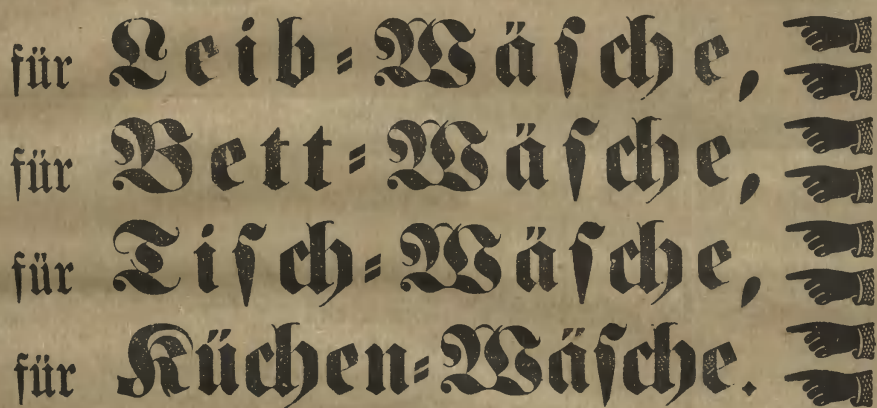 für Leib-Wäſche,
für Bett-Wäſche,
für Tiſch-Wäſche,
für Küchen-Wäſche.